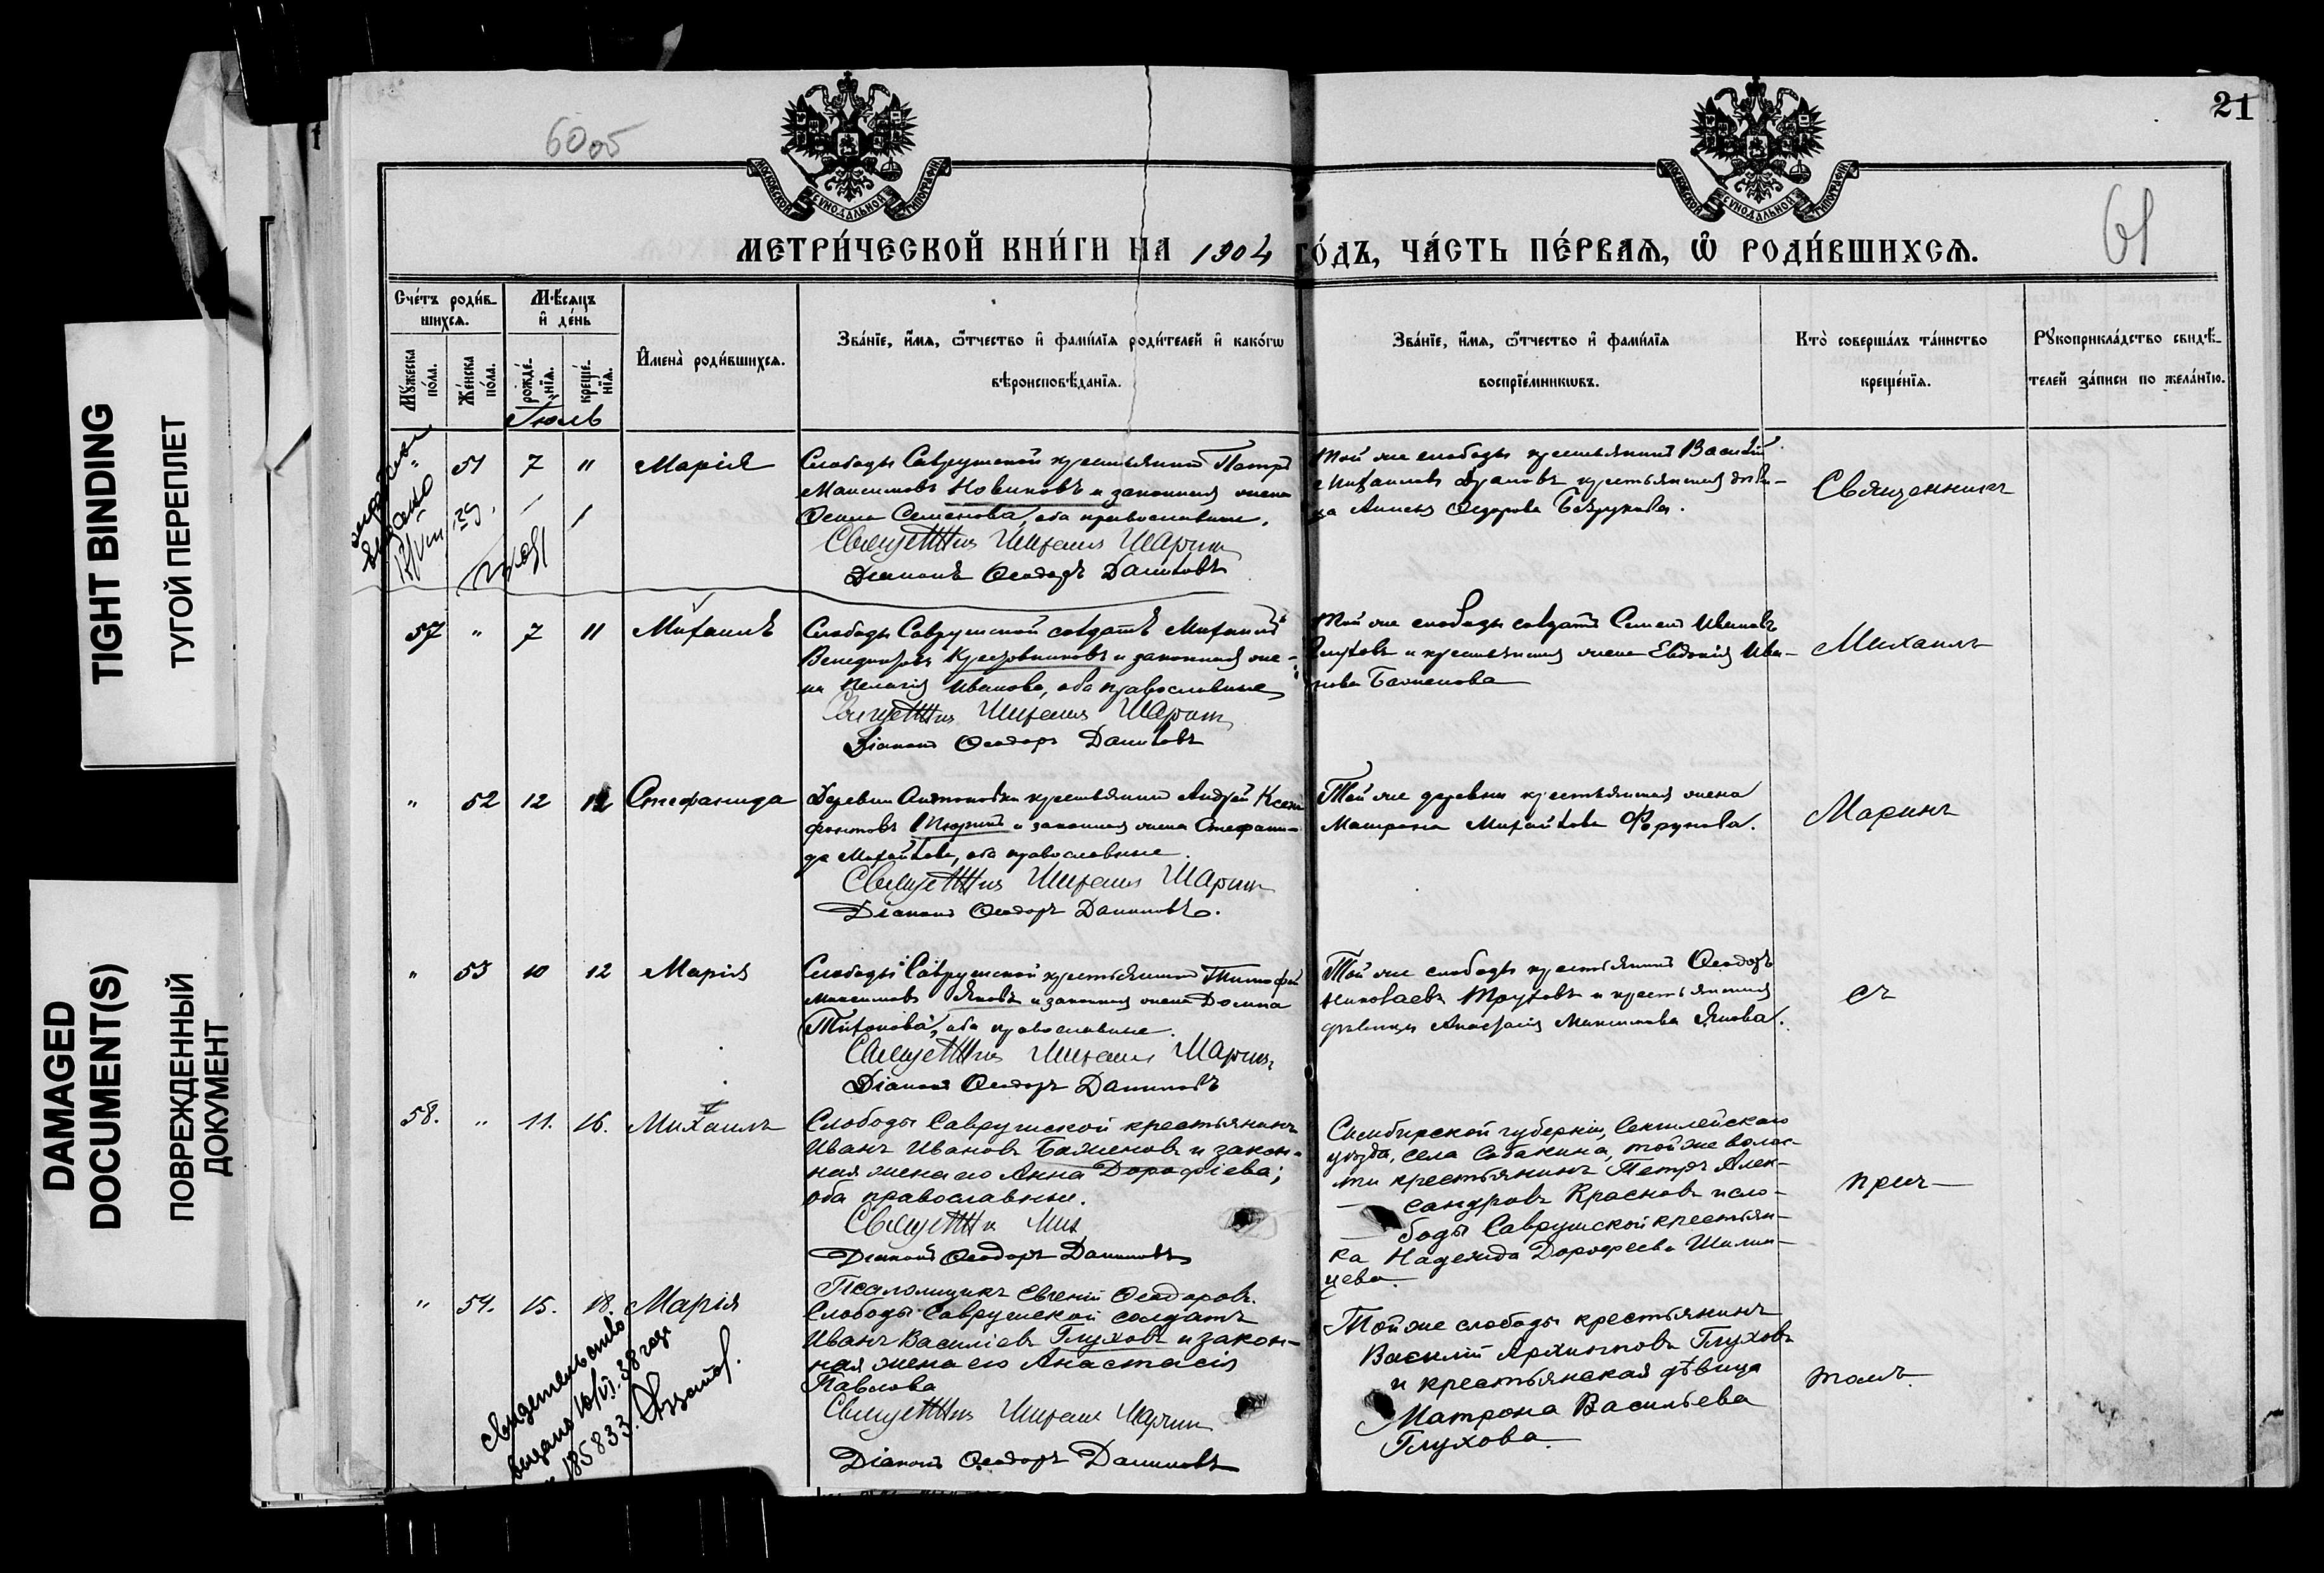 TIGHT BINDING
ТУГОЙ ПЕРЕПЛЕТ
DAMAGED
DOCUMENT(S)
ПОВРЕЖДЕННЫЙ
ДОКУМЕНТ
21
61
МОСКОВСКОЙ СѴНОДАЛЬНОЙ ТИПОГРАФІИ
МОСКОВСКОЙ СѴНОДАЛЬНОЙ ТИПОГРАФІИ
МЕТРИ́ЧЕСКОЙ КНИ́ГИ НА 1904 ГО́ДЪ, ЧА́СТЬ ПЕ́РВАѦ, Ѡ҆ РОДИ́ВШИХСѦ.
Сче́тъ роди́в-
шихсѧ.
Мꙋжеска
по́ла.
Же́нска
по́ла.
Мѣ́сѧцъ
и҆ де́нь
рожде́-
нїѧ.
креще́-
нїѧ.
И҆мена̀ роди́вшихсѧ.
Зва́нїе, и҆́мѧ, ѻ҆́тчество и҆ фами́лїѧ роди́телей и҆ како́гѡ
вѣроисповѣ́данїѧ.
Зва́нїе, и҆́мѧ, ѻ҆́тчество и҆ фами́лїѧ
воспрїе́мникѡвъ.
Кто̀ соверша́лъ та́инство
креще́нїѧ.
Рꙋкоприкла́дство свидѣ́-
телей за́писи по жела́нїю.
Іюль
" 51 7 11 Марія
Слободы Саврушской крестьянинъ Петръ
Максимовъ Новиковъ и законная жена
Семенова, оба православные.
Священникъ Михаилъ Маринъ
Діаконъ Ѳеодоръ Даниловъ
Той же слободы крестьянинъ Василій
Михаиловъ крестьянская дѣви-
ца Ѳедорова
Священникъ
57 " 7 11 Михаилъ
Слободы Саврушской солдатъ Михаилъ
Венедиктовъ и законная же-
на Пелагія Иванова, оба православные
Священникъ Михаилъ Маринъ
Діаконъ Ѳеодоръ Даниловъ
Той же слободы солдатъ Семенъ Ивановъ
Глуховъ и крестьянская жена Евдокія Ива-
нова Баженова
Михаилъ
" 52 12 12 Стефанида
Деревни Антоновки крестьянинъ Андрей Ксено-
фонтовъ и законная жена Стефани-
да Михайлова, оба православные.
Священникъ Михаилъ Маринъ
Діаконъ Ѳеодоръ Даниловъ.
Той же деревни крестьянская жена
Матрона Михайлова
Маринъ
" 53 10 12 Марія
Слободы Саврушской крестьянинъ Тимофей
Максимовъ Яковъ и законная жена Домна
Тихонова, оба православные.
Священникъ Михаилъ Маринъ
Діаконъ Ѳеодоръ Даниловъ
Той же слободы крестьянинъ Ѳеодоръ
Николаевъ Труховъ и крестьянская
дѣвица Анастасія Максимова
съ
58. " 11. 16. Михаилъ
Слободы Саврушской крестьянинъ
Иванъ Ивановъ Баженовъ и закон-
ная жена его Анна Дорофіева;
оба православные.
Священникъ Мих
Діаконъ Ѳеодоръ Даниловъ
Псаломщикъ Евгеній Ѳеодоровъ.
Симбирской губерніи, Сенгилейскаго
уѣзда, села Собакина, той же волос-
ти крестьянинъ Петръ Алек-
сандровъ Красновъ и сло-
боды Саврушской крестьян-
ка Надежда Дорофеева Шилин-
цева.
прич-
" 54. 15. 18. Марія
Слободы Саврушской солдатъ
Иванъ Василіевъ Глуховъ и закон-
ная жена его Анастасія
Павлова
Священникъ Михаилъ Маринъ
Діаконъ Ѳеодоръ Даниловъ
Той же слободы крестьянинъ
Василій Архиповъ Глуховъ
и крестьянская дѣвица
Матрона Васильева
Глухова.
томъ.
свидетельство
выдано 10/VI. 38 года
185833.